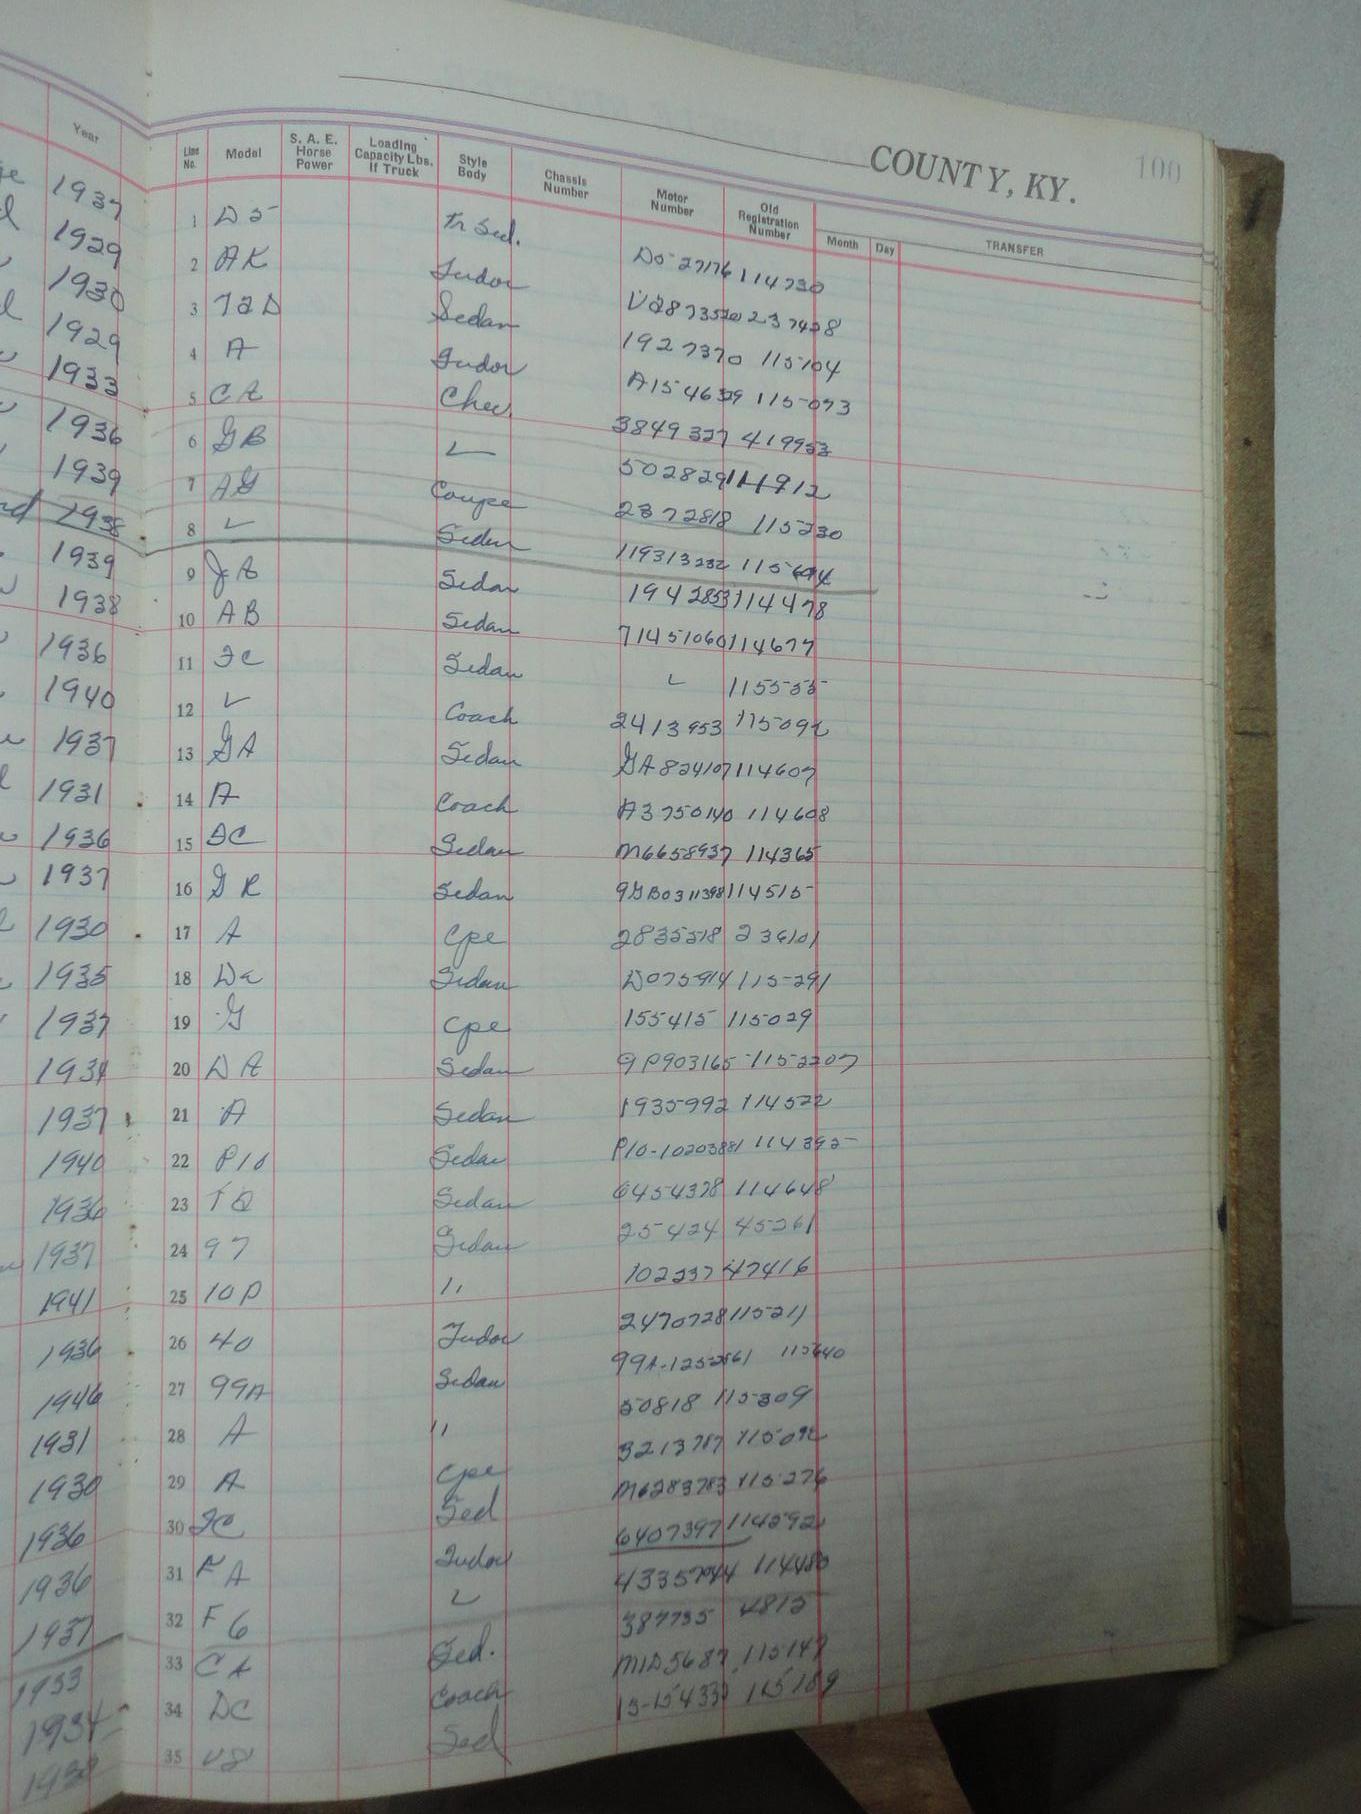 COUNTY, KY. 100
Year Line No. Model S. A. E. Horse Power Loading Capacity Lbs. If Truck Style Body Chassis Number Motor Number Old Registration Number Month Day TRANSFER
1937 1 D5 Tr Sed. D5-27176 114730
1929 2 AK Tudor 237428
1930 3 Sedan 1927370 115104
1929 4 A Tudor A154639 115093
1933 5 CA Chev. 3849327 419953
1936 6 GB ✓ 502829 114912
1939 7 AG Coupe 2372818 115230
1938 8 ✓ Sedan
1939 9 JB Sedan 1942853 114478
1938 10 AB Sedan 71451060 114677
1936 11 FC Sedan ✓ 115535
1940 12 ✓ Coach 2413953 115092
1937 13 GA Sedan GA824107 114607
1931 14 A Coach A3750140 114608
1936 15 FC Sedan M6658937 114365
1937 16 GR Sedan 114515
1930 17 A Cpe 2835518 236101
1935 18 Sedan D075914 115291
1937 19 G Cpe 155415 115029
1934 20 DA Sedan 9P903165 1152207
1937 21 A Sedan 1935992 114522
1940 22 P10 Sedan P10-10203881 114395
1936 23 Sedan 6454378 114648
1937 24 97 Sedan 25424 45261
1941 25 10P " 102237 47416
1936 26 40 Tudor 2470728 115211
1946 27 99A Sedan 115640
1931 28 A " 50818 115309
1930 29 A Cpe 3213787 115092
1936 30 FC Sed M6283783 115276
1936 31 FA Tudor 6407397 114592
1937 32 F6 ✓ 114480
1933 33 CA Sed. 387735 4815
1934 34 DC Coach M1D5687 115147
1938 35 V8 Sed 115189